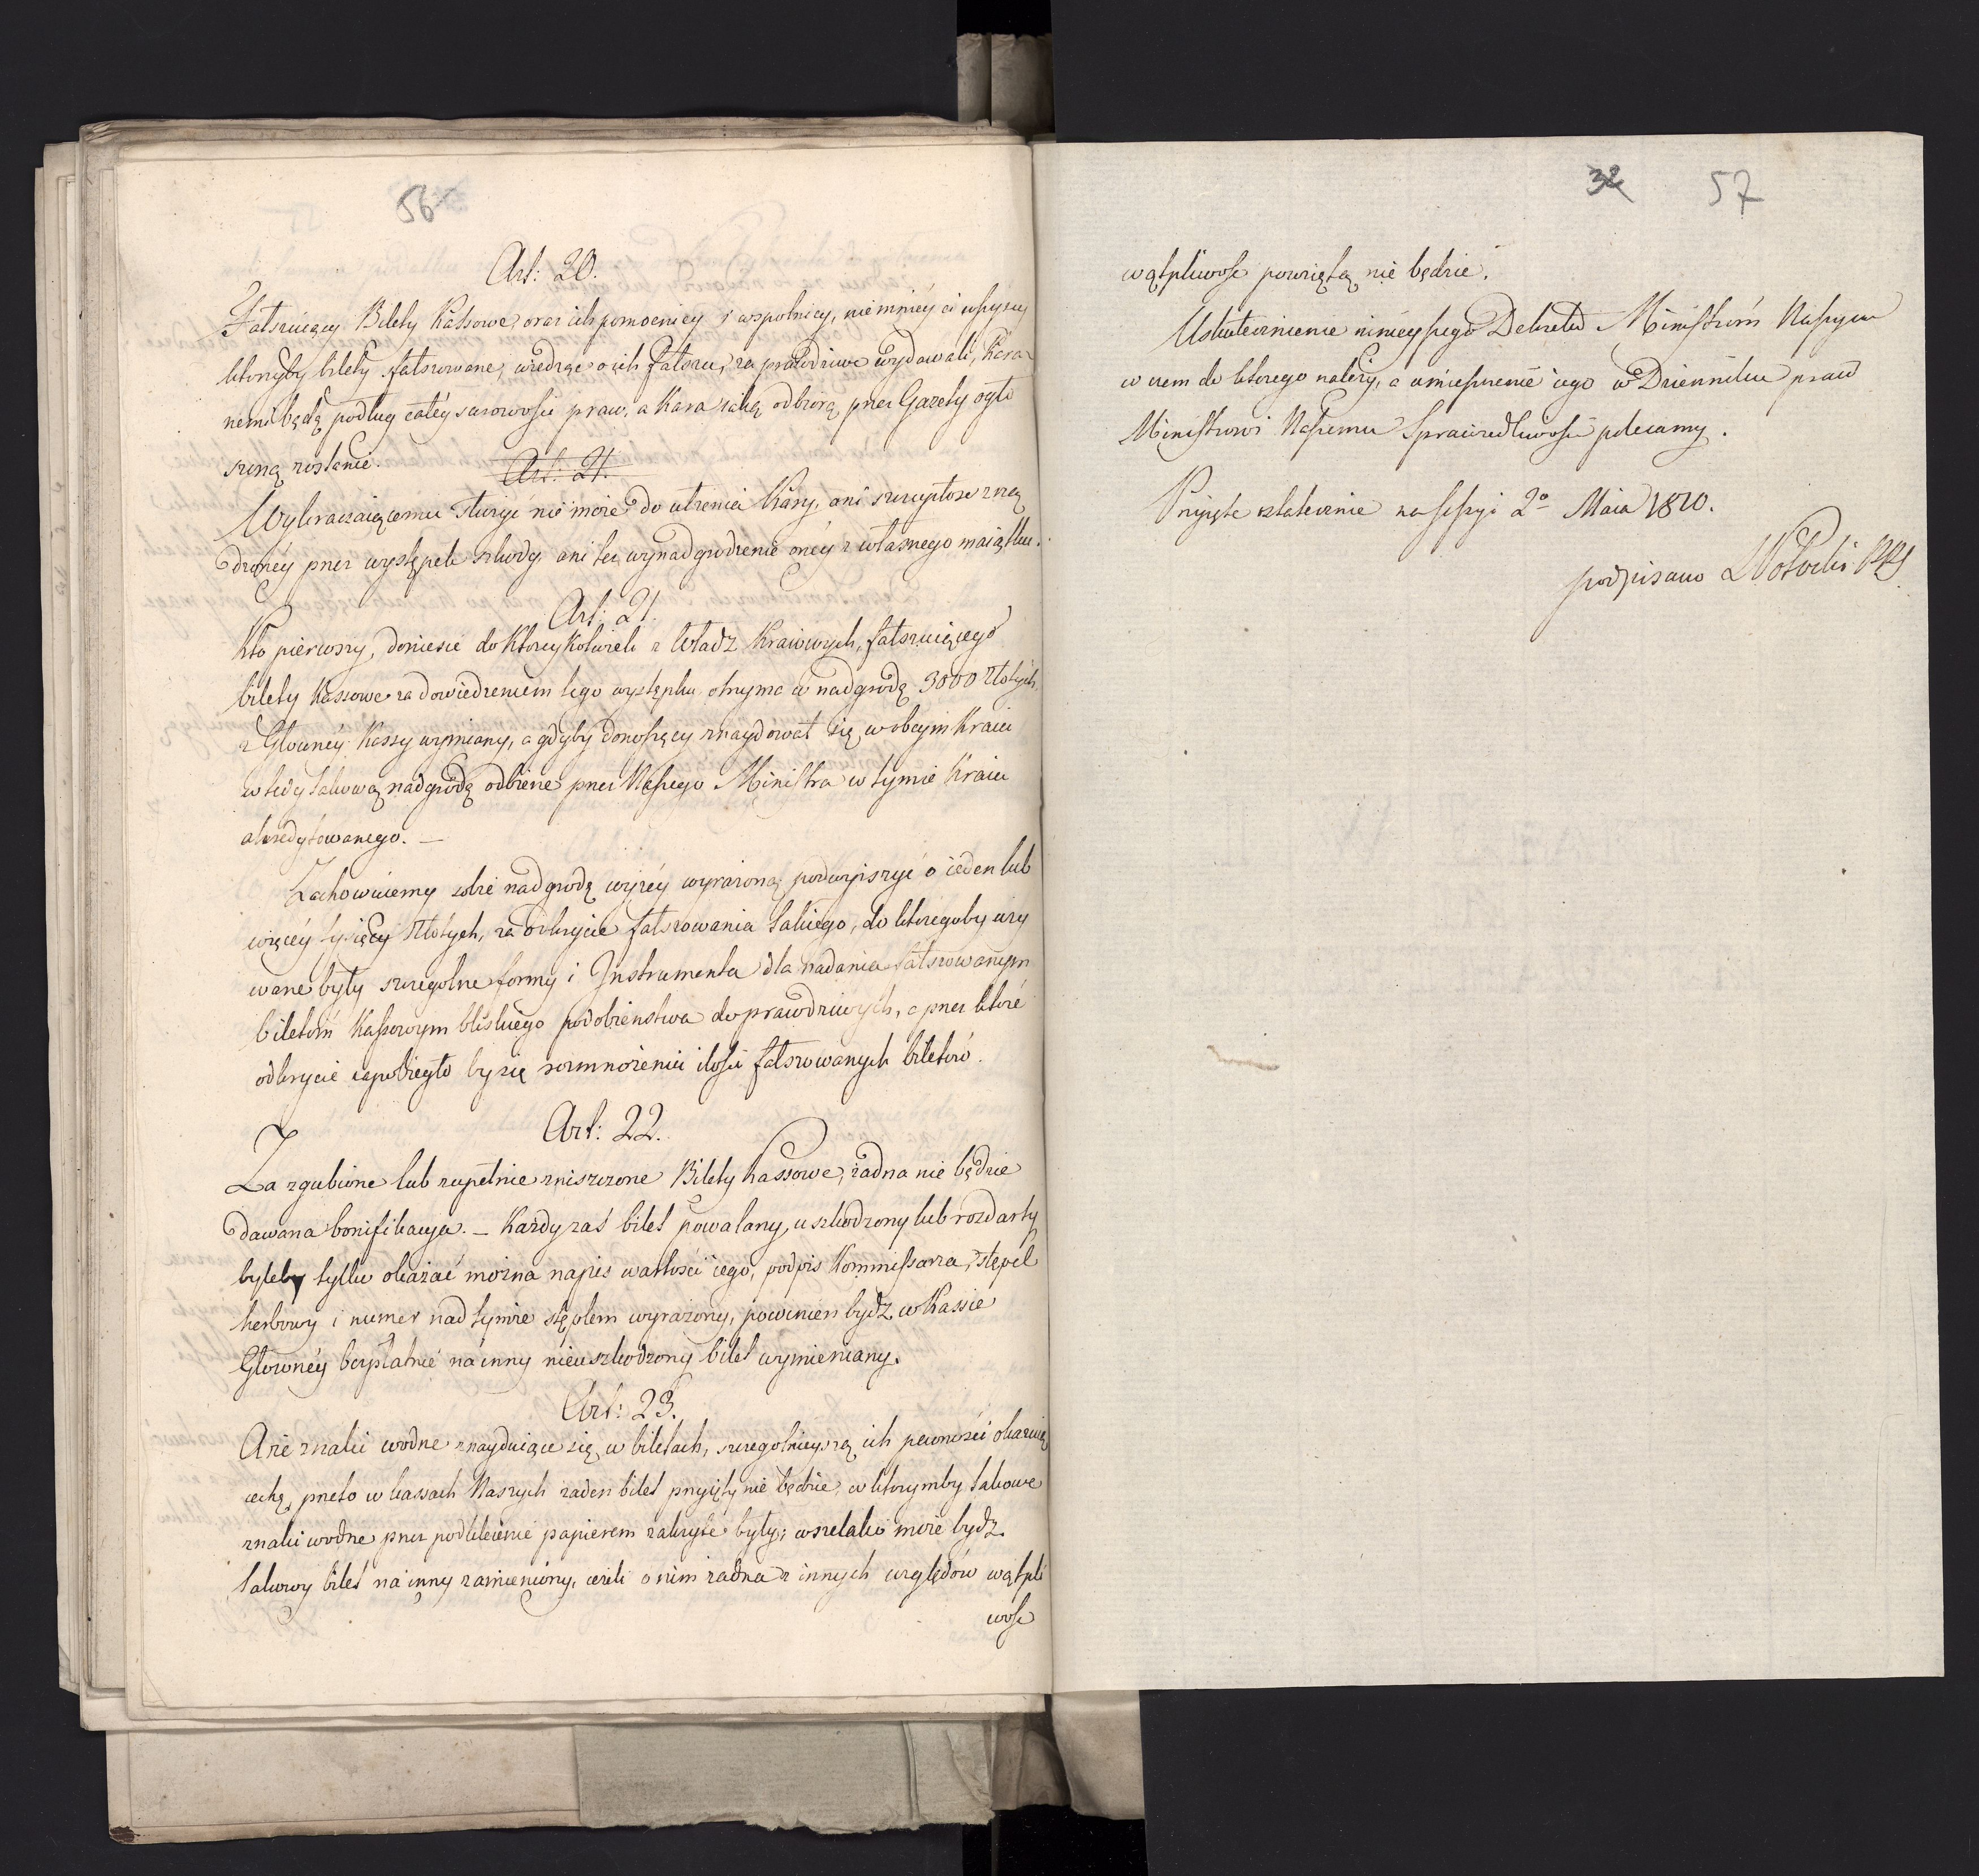 56
Art: 20.
Fałszuiący Bilety Kassowe, oraz ich pomocnicy i wspolnicy, niemniéy ci wszyscy
którzyby bilety fałszowane, wiedząc o ich fałszu, za prawdziwe wydawali, Kara-
nemi będą podług całéy surowości praw, a Kara iaką odbiorą, przez Gazety ogło
szoną zostanie.
Art: 21.
Wykraczaiącemu służyć nie może do ulżenia Kary, ani szczupłosc zrzą
dzonéy przez występek szkody, ani też wynadgrodzenie onéy z własnego maiątku.
Art: 21.
Kto pierwszy, doniesie do Ktoreykolwiek z Władz Kraiowych, fałszuiącego
bilety Kassowe za dowiedzeniem tego występku otrzyma w nadgrodę 3000 Złotych
z Głownéy Kassy wymiany, a gdyby donoszący znaydował się w obcym Kraiu
wtedy takową nadgrodę odbierze przez Naszego Ministra w tymże Kraiu
akredytowanego. —
Zachowuiemy sobie nadgrodę wyżéy wyrażoną podwyiszyć o ieden lub
więcéy tysięcy Złotych, za odkrycie fałszowania takiego, do któregoby uży
wane były szczegolne formy i Instrumenta dla nadania fałszowanym
biletom Kassowym bliskiego podobieństwa do prawdziwych, a przez które
odkrycie zapobiegło by się rozmnożeniu ilości fałszowanych biletów.
Art: 22.
Za zgubione lub zupełnie zniszczone Bilety Kassowe, żadna nie będzie
dawana bonifikacya. – Każdy zaś bilet powalany, uszkodzony lub rozdarty
byleby tylko okazać można napis wartości iego, podpis Kommissarza, stępel
herbowy i numer nad tymże stęplem wyrażony, powinien bydź w Kassie
Głownéy bezpłatnie na inny nieuszkodzony bilet wymieniany.
Art: 23.
Aże znaki wodne znayduiące się w biletach, szczegolnieyszą ich pewności okazuią
cechę, przeto w kassach Naszych żaden bilet przyięty nie będzie, w którymby takowe
znaki wodne przez podkleienie papierem zakryte były; wszelako może bydź
takowy bilet na inny zamieniony, ieżeli o nim żadna z innych względów wątpli
wosc
32 57
wątpliwosc powziętą nie będzie.
Uskutecznienie ninieyszego Dekretu Ministróm Naszym
w czem do którego należy, a umieszczenie iego w Dzienniku praw
Ministrowi Naszemu Sprawiedliwości polecamy.
Przyięte statecznie na sessyi 2º Maia 1810.
podpisano